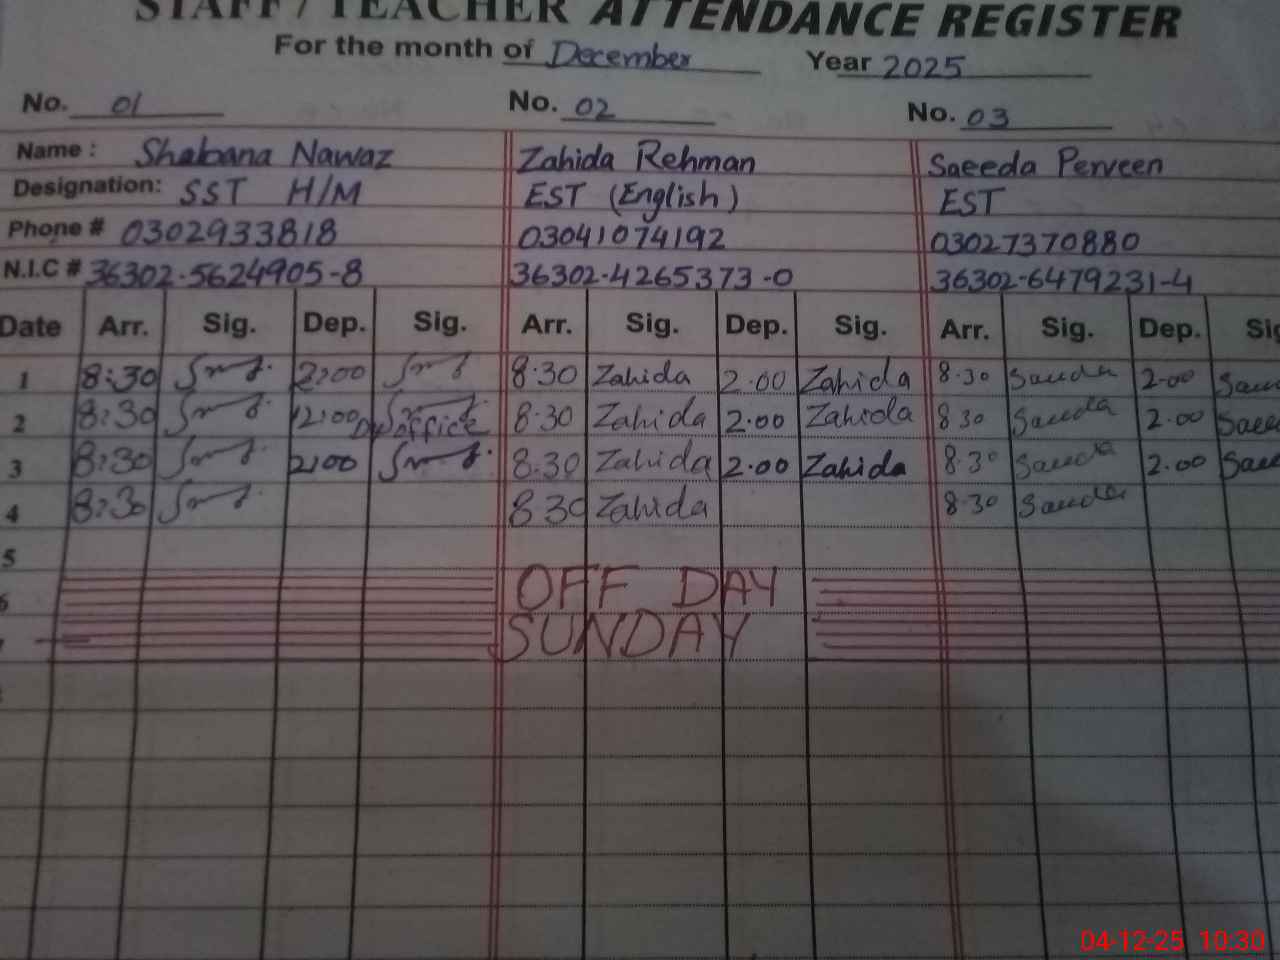 STAFF / TEACHER ATTENDANCE REGISTER
For the month of December Year 2025
No. 01 No. 02 No. 03
Name : Shabana Nawaz Zahida Rehman Saeeda Perveen
Designation: SST H/M EST (English) EST
Phone # 0302933818 03041074192 03027370880
N.I.C # 36302-5624905-8 36302-4265373-0 36302-6479231-4
Date Arr. Sig. Dep. Sig. Arr. Sig. Dep. Sig. Arr. Sig. Dep.
1 8:30 2:00 8.30 Zahida 2.00 Zahida 8.30 Saeeda 2.00
2 8:30 12:00 office 8.30 Zahida 2.00 Zahida 8 30 Saeeda 2.00
3 8:30 2:00 8.30 Zahida 2.00 Zahida 8.30 Saeeda 2.00
4 8:30 8 30 Zahida 8.30 Saeeda
5
OFF DAY
SUNDAY
04-12-25 10:30